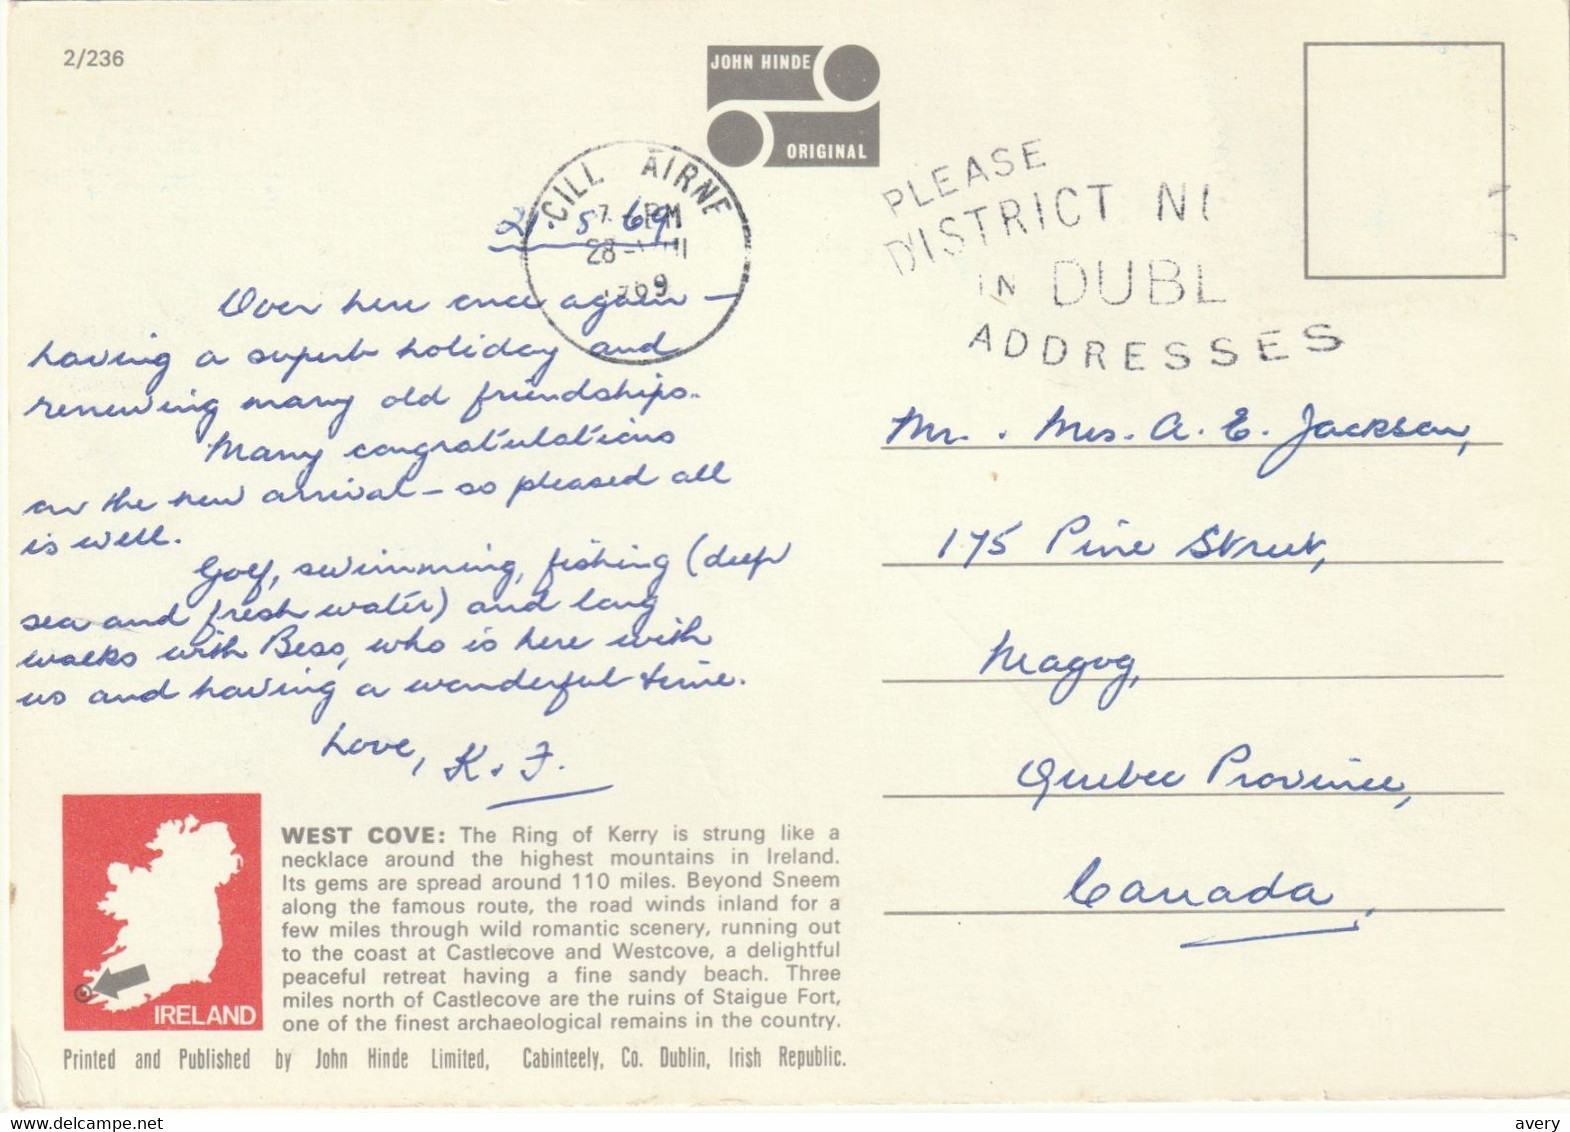 2/236
JOHN HINDE
ORIGINAL
CILL AIRNE
7 - PM
28 - VIII
1969
PLEASE
DISTRICT
IN DUBL
ADDRESSES
21. 5 69
Over here once again -
having a superb holiday and
renewing many old friendships.
Many congratulations
on the new arrival - so pleased all
is well.
Golf, swimming, fishing (deep
sea and fresh water) and long
walks with Bess, who is here with
us and having a wonderful time.
Love, K. J.
Mr. . Mrs. A. E. Jackson,
175 Pine Street,
Magog,
Quebec Province,
Canada,
WEST COVE: The Ring of Kerry is strung like a
necklace around the highest mountains in Ireland.
Its gems are spread around 110 miles. Beyond Sneem
along the famous route, the road winds inland for a
few miles through wild romantic scenery, running out
to the coast at Castlecove and Westcove, a delightful
peaceful retreat having a fine sandy beach. Three
miles north of Castlecove are the ruins of Staigue Fort,
one of the finest archaeological remains in the country.
IRELAND
Printed and Published by John Hinde Limited, Cabinteely, Co. Dublin, Irish Republic.
www.delcampe.net
avery